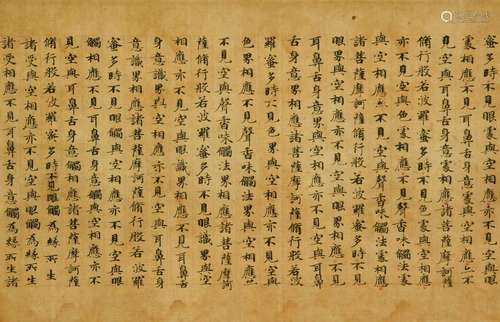 蜜多時不見眼處與空相應亦不見空與眼
處相應不見耳鼻舌身意處與空相應亦不
見空與耳鼻舌身意處相應諸菩薩摩訶薩
脩行般若波羅蜜多時不見色處與空相應
亦不見空與色處相應不見聲香味觸法處
與空相應亦不見空與聲香味觸法處相應
諸菩薩摩訶薩脩行般若波羅蜜多時不見
眼界與空相應亦不見空與眼界相應不見
耳鼻舌身意界與空相應亦不見空與耳鼻
舌身意界相應諸菩薩摩訶薩脩行般若波
羅蜜多時不見色界與空相應亦不見空與
色界相應不見聲香味觸法界與空相應亦
不見空與聲香味觸法界相應諸菩薩摩訶
薩脩行般若波羅蜜多時不見眼識界與空
相應亦不見空與眼識界相應不見耳鼻舌
身意識界與空相應亦不見空與耳鼻舌身
意識界相應諸菩薩摩訶薩脩行般若波羅
蜜多時不見眼觸與空相應亦不見空與眼
觸相應不見耳鼻舌身意觸與空相應亦不
見空與耳鼻舌身意觸相應諸菩薩摩訶薩
脩行般若波羅蜜多時不見眼觸為緣所生
諸受與空相應亦不見空與眼觸為緣所生
諸受相應不見耳鼻舌身意觸為緣所生諸